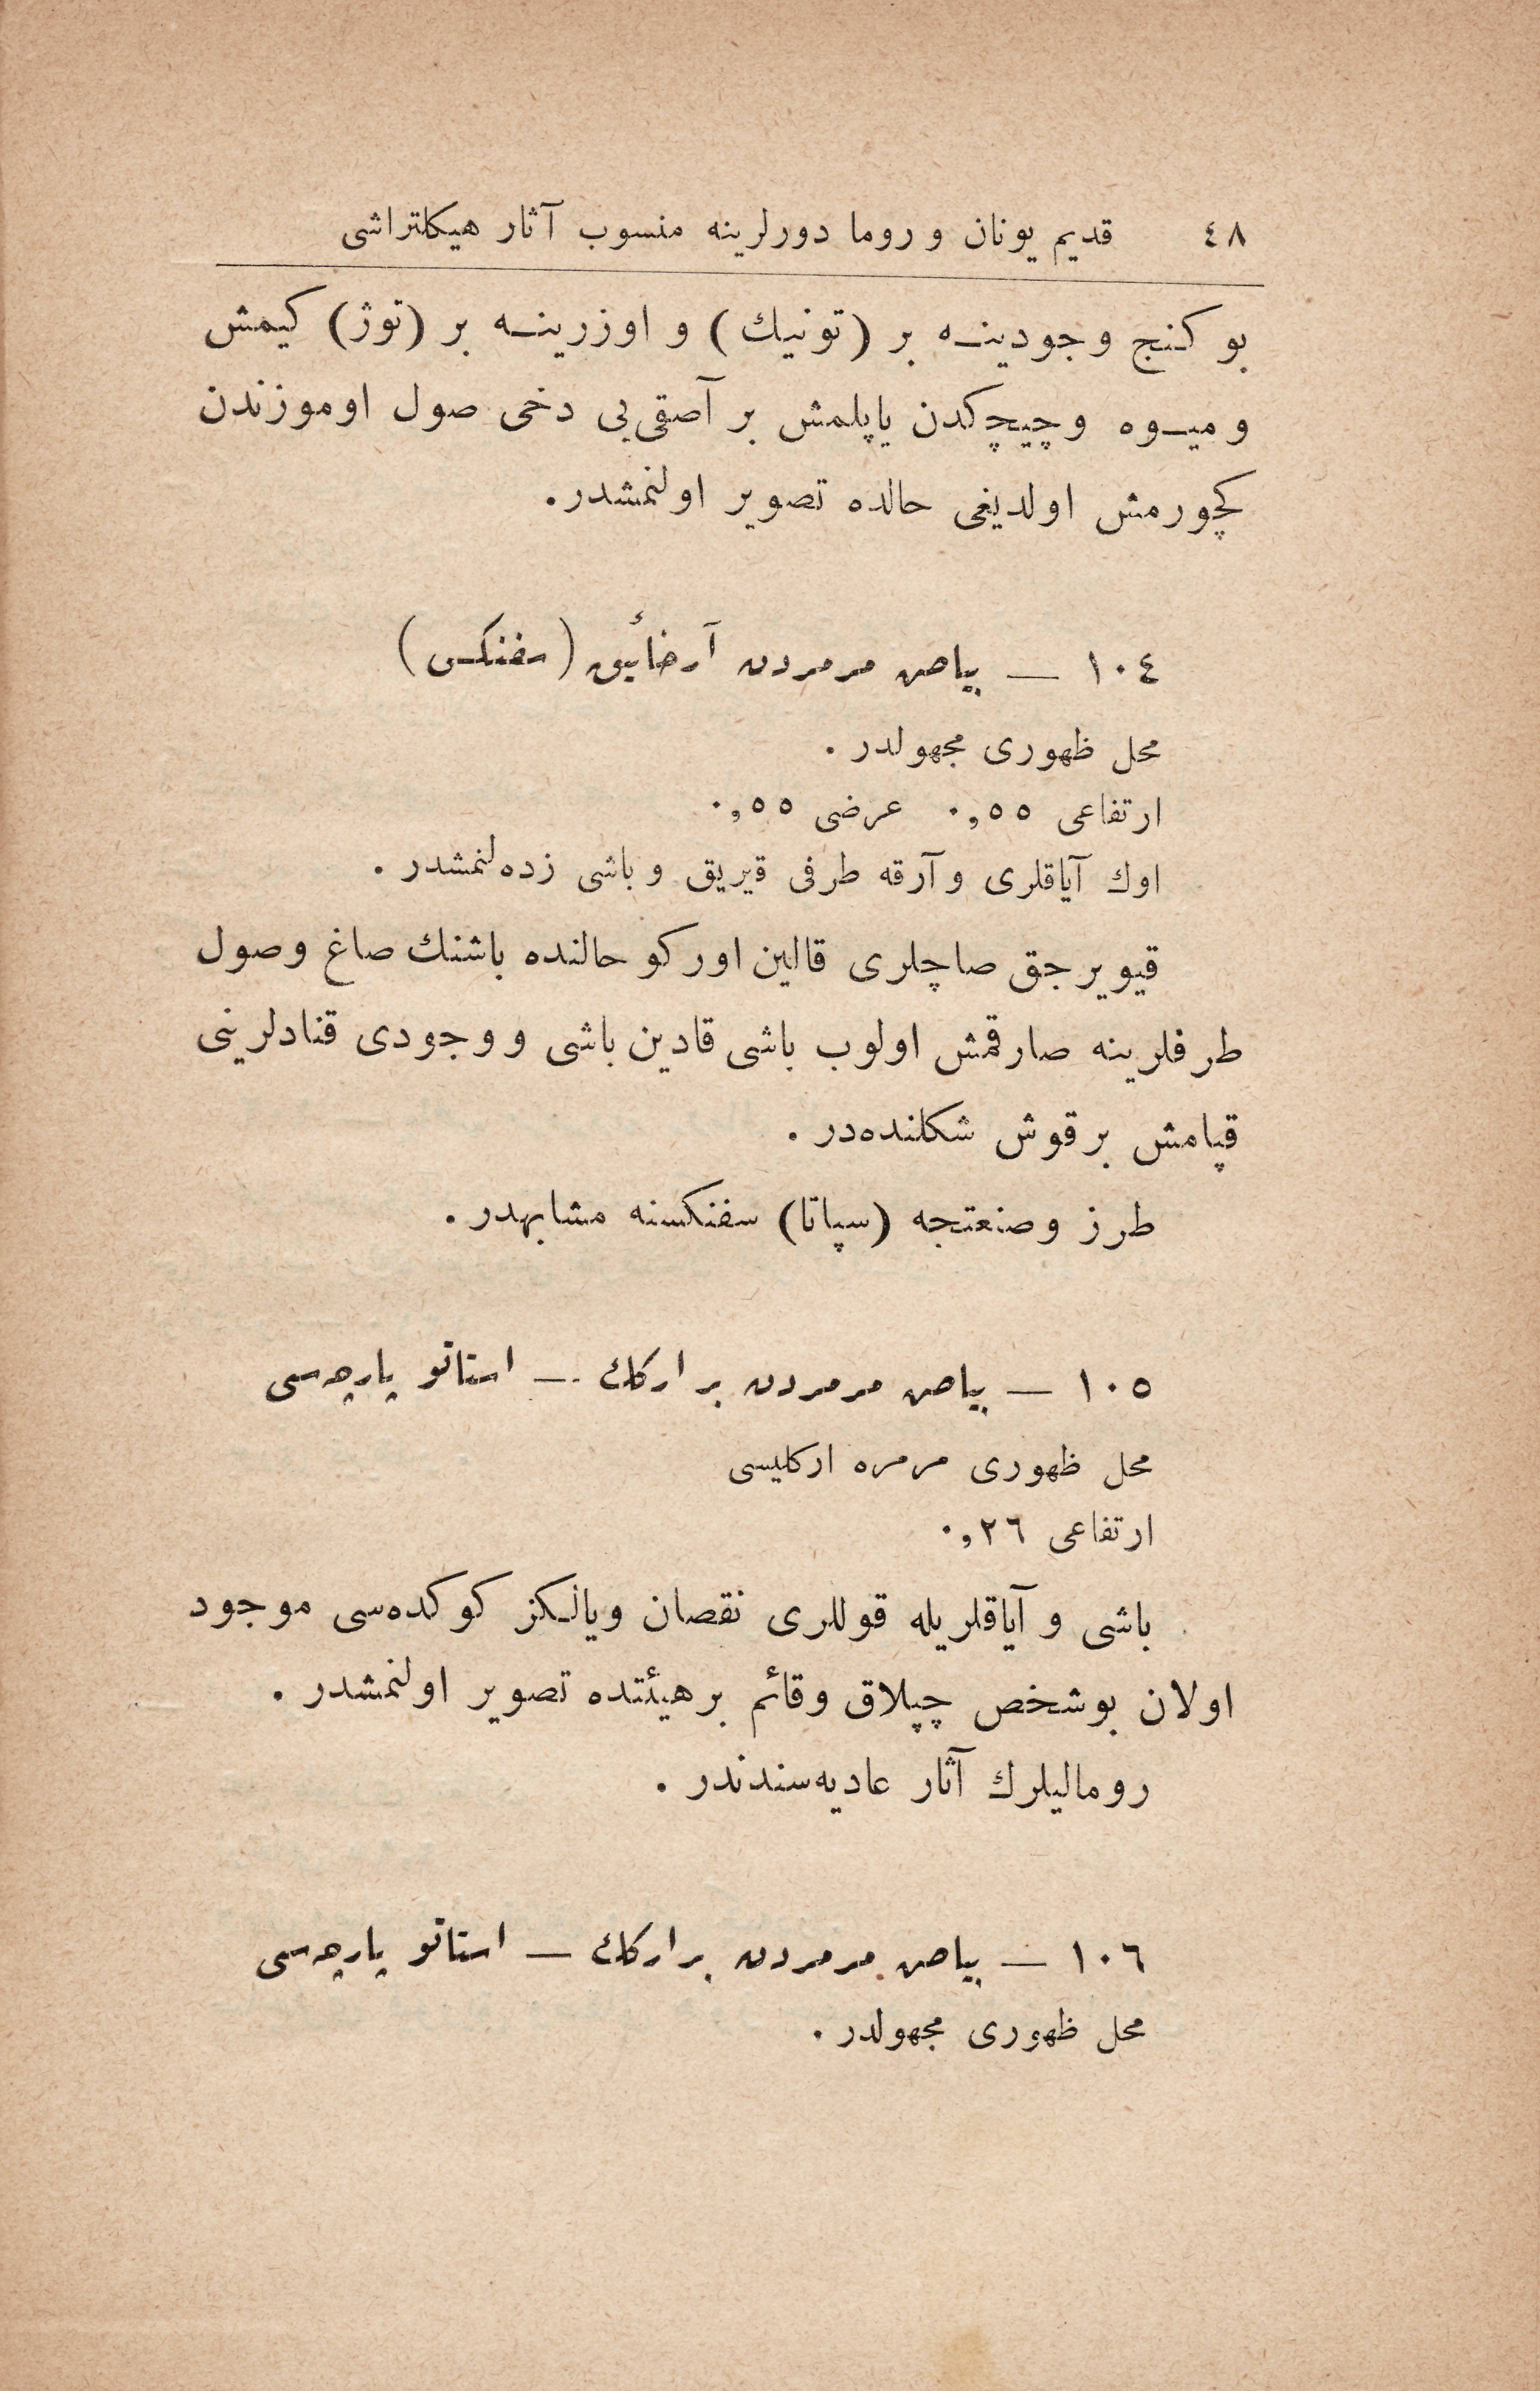 ٤٨ قديم يونان و روما دورلرينه منسوب آثار هيكلتراشى
بو كنج وجودينه بر (تونيك) و اوزرينه بر (توژ) كيمش
و ميوه وچيچكدن ياپلمش بر آصقى‌يى دخى صول اوموزندن
كچورمش اولديغى حالده تصوير اولنمشدر.
١٠٤ — بياض مرمردن آرخائيق (سفنكس)
محل ظهورى مجهولدر .
ارتفاعى ٠,٥٥ عرضى ٠,٥٥
اوك آياقلرى و آرقه طرفى قيريق و باشى زده‌لنمشدر .
قيويرجق صاچلرى قالين اوركو حالنده باشنك صاغ وصول
طرفلرينه صارقمش اولوب باشى قادين باشى و وجودى قنادلرينى
قپامش بر قوش شكلنده‌در .
طرز وصنعتجه (سپاتا) سفنكسنه مشابهدر .
١٠٥ — بياض مرمردن بر اركك — استاتو پارچه‌سى
محل ظهورى مرمره اركليسى
ارتفاعى ٠,٢٦
باشى و آياقلريله قوللرى نقصان ويالكز كوكده‌سى موجود
اولان بوشخص چپلاق وقائم بر هيئتده تصوير اولنمشدر .
روماليلرك آثار عاديه‌سندندر .
١٠٦ — بياض مرمردن بر اركك — استاتو پارچه‌سى
محل ظهورى مجهولدر .